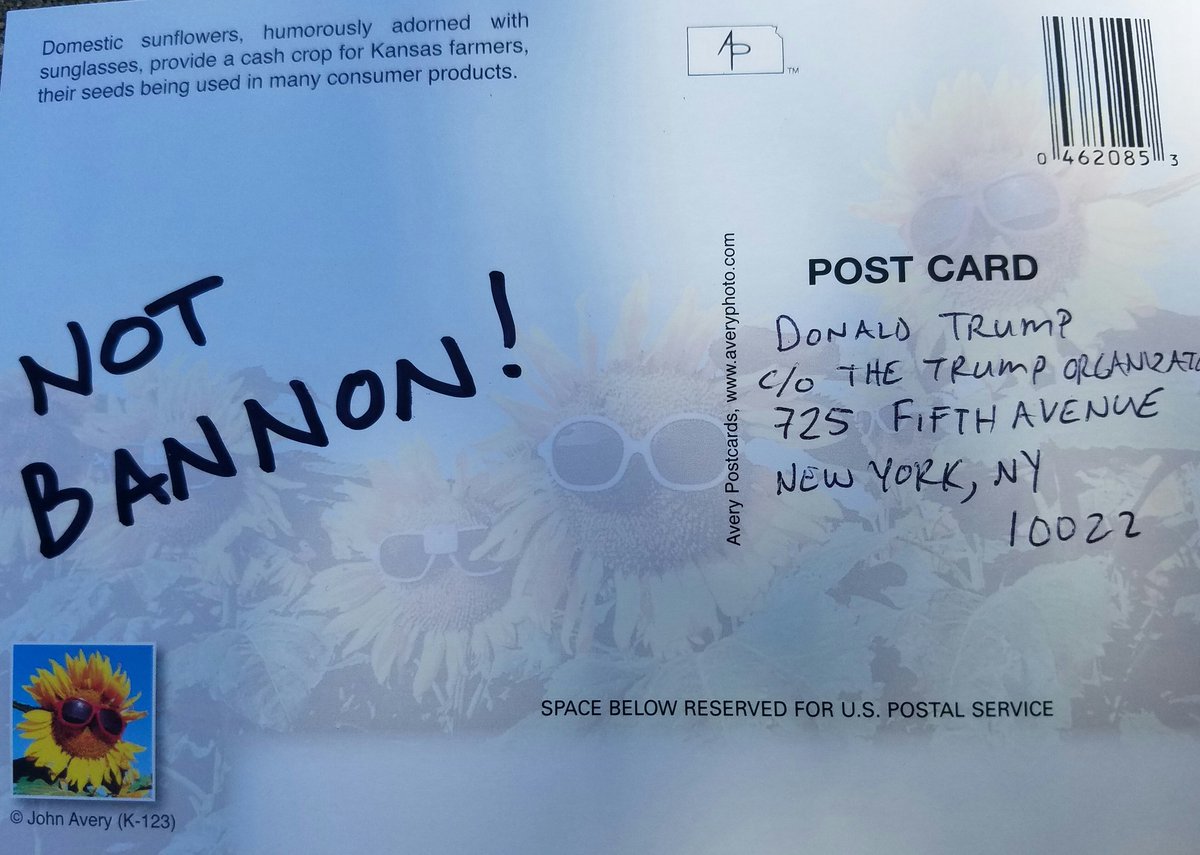 Domestic sunflowers, humorously adorned with
sunglasses, provide a cash crop for Kansas farmers,
their seeds being used in many consumer products.
NOT
BANNON!
© John Avery (K-123)
AP
TM
0 462085 3
Avery Postcards, www.averyphoto.com
POST CARD
DONALD TRUMP
c/o THE TRUMP ORGANIZATIO
725 FIFTH AVENUE
NEW YORK, NY
10022
SPACE BELOW RESERVED FOR U.S. POSTAL SERVICE